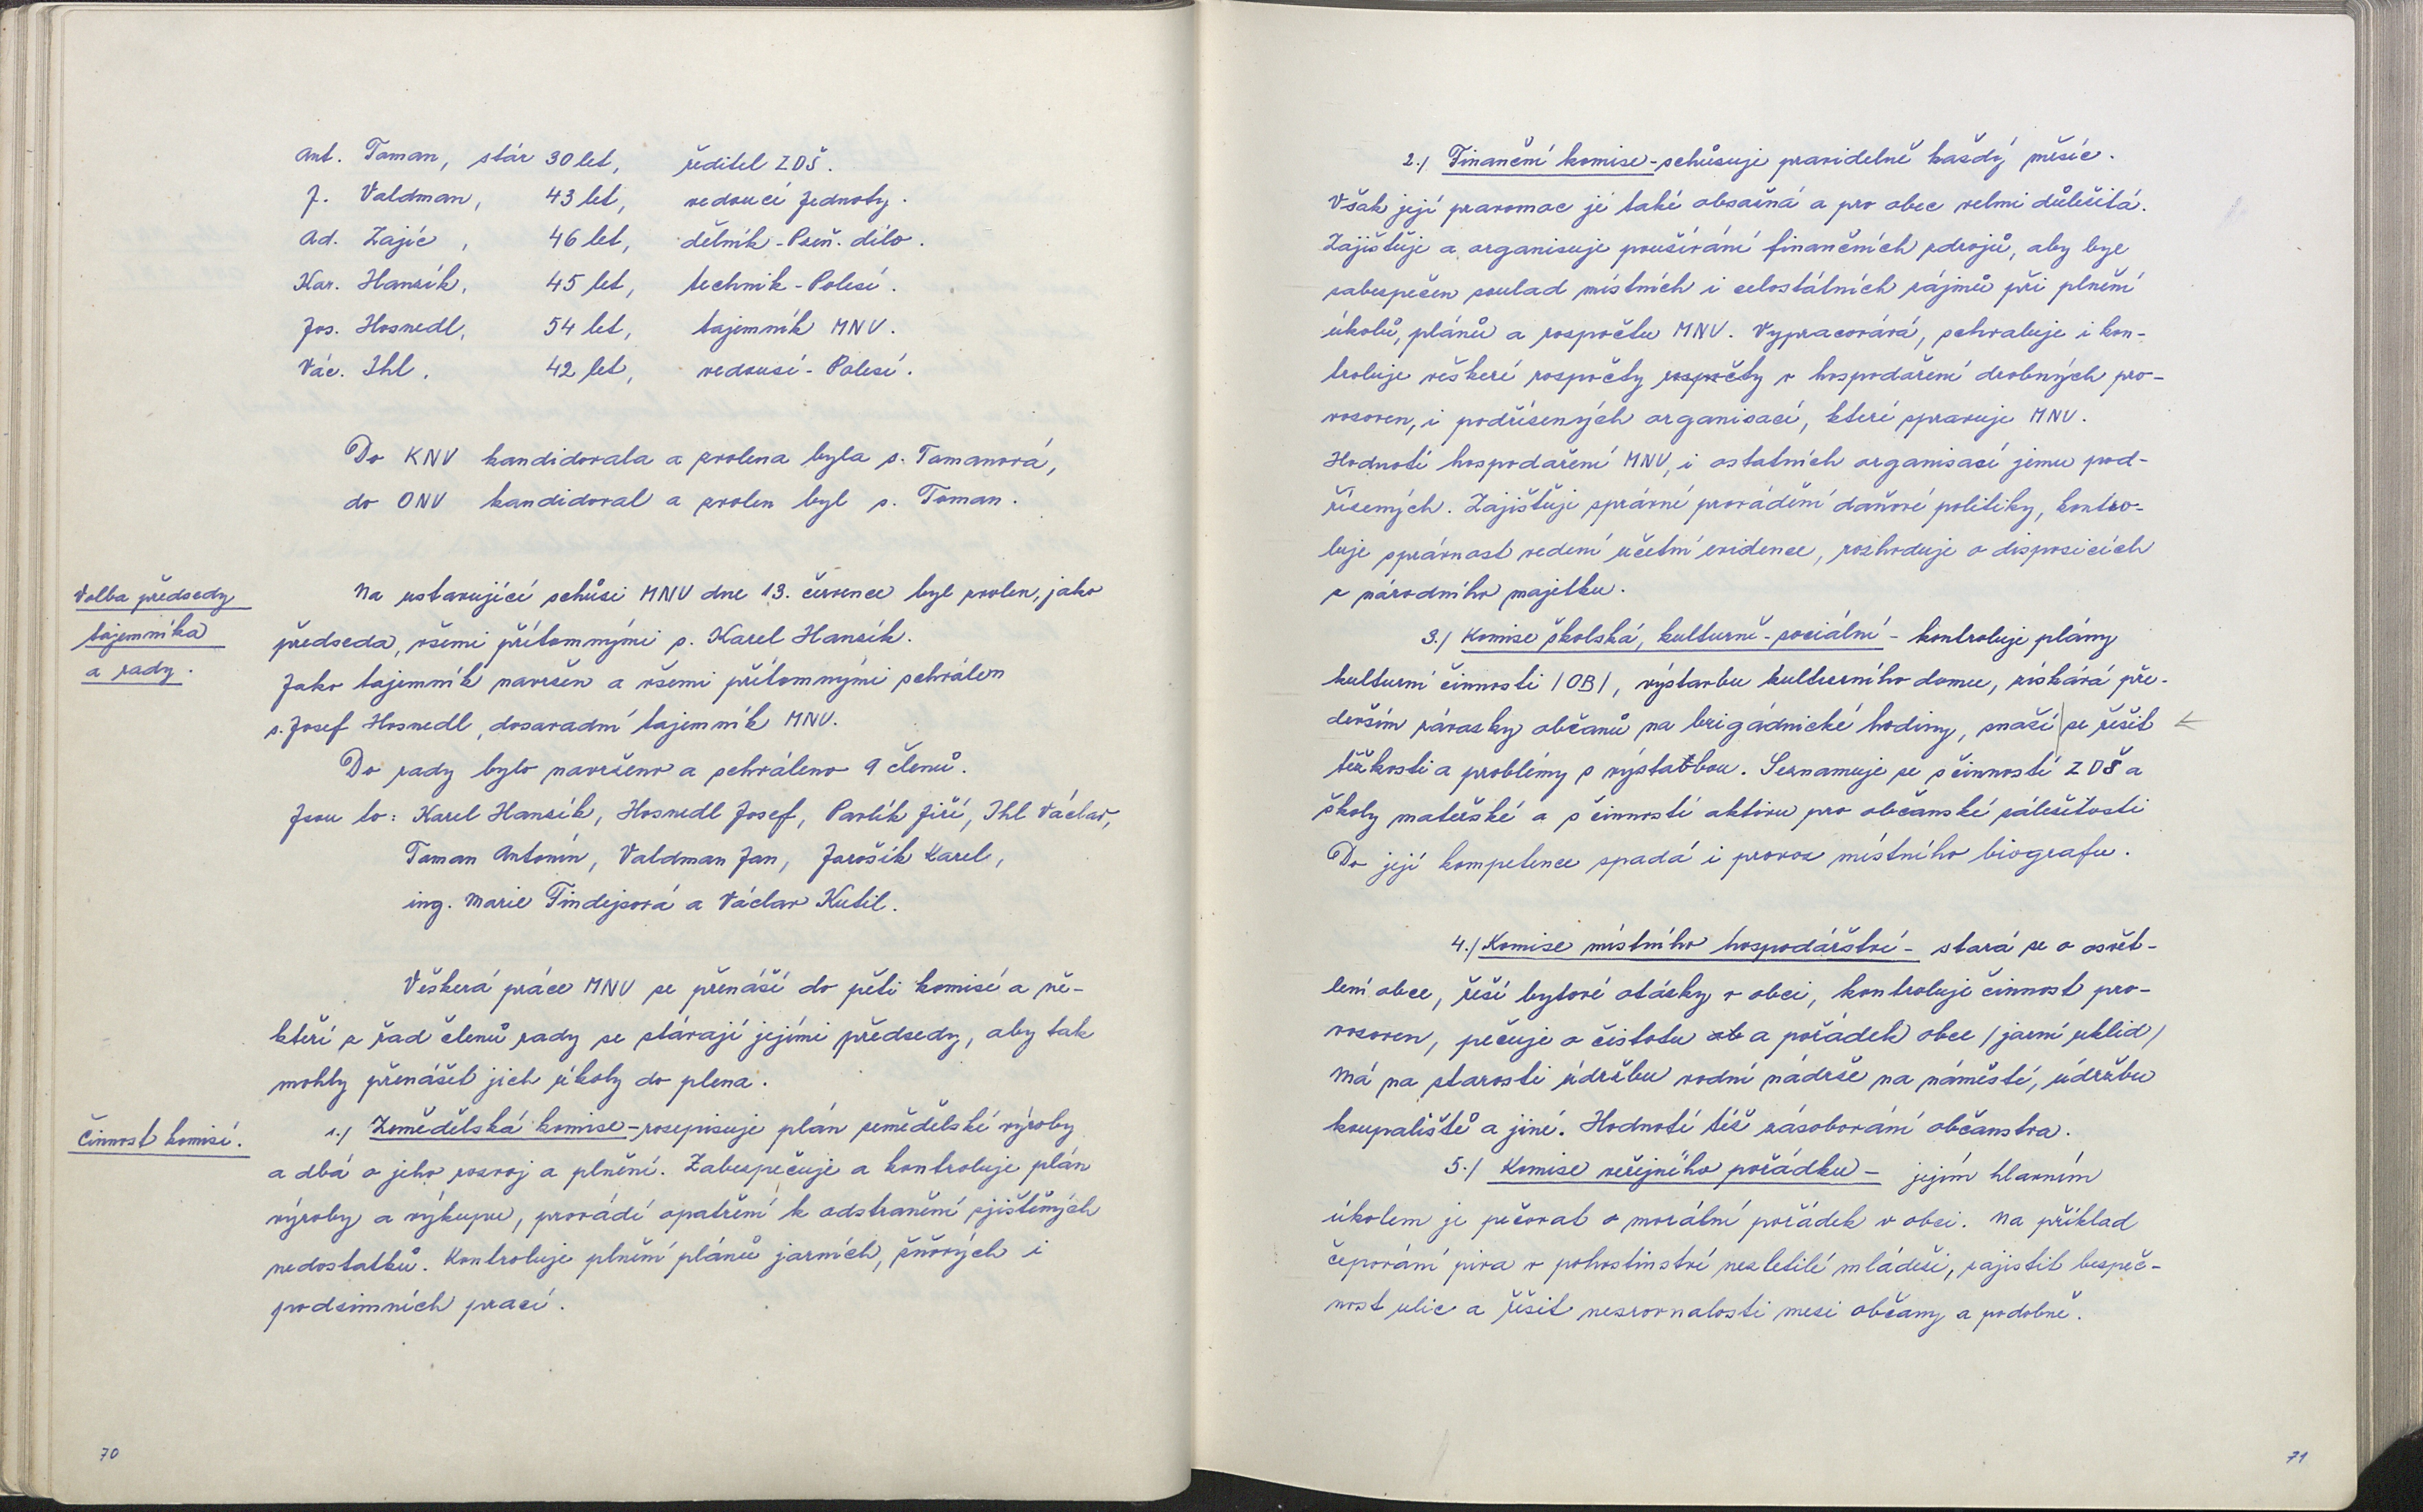 Ant. Toman, stár 30 let, ředitel ZDŠ.
J. Valdman, 43 let, vedoucí Jednoty.
Ad. Zajíc, 46 let, dělník - Prům. dílo.
Kar. Hanzík, 45 let, technik - Polesí.
Jos. Hosnedl, 54 let, tajemník MNV.
Vác. Ihl. 42 let, vedoucí - Polesí.
Do KNV kandidovala a zvolena byla s. Tomanová,
do ONV kandidoval a zvolen byl s. Toman.
Volba předsedy
tajemníka
a rady.
Na ustavující schůzi MNV dne 13. července byl zvolen, jako
předseda, všemi přítomnými s. Karel Hanzík.
Jako tajemník navržen a všemi přítomnými schválen
s. Josef Hosnedl, dosavadní tajemník MNV.
Do rady bylo navrženo a schváleno 9 členů.
Jsou to: Karel Hanzík, Hosnedl Josef, Pavlík Jiří, Ihl Václav,
Toman Antonín, Valdman Jan, Jarošík Karel,
ing. Marie Tindejsová a Václav Kutil.
Veškerá práce MNV se přenáší do pěti komisí a ně-
kteří z řad členů rady se stávají jejími předsedy, aby tak
mohly přenášet jich úkoly do plena.
Činnost komisí.
1./ Zemědělská komise - rozepisuje plán zemědělské výroby
a dbá o jeho rozvoj a plnění. Zabezpečuje a kontroluje plán
výroby a výkupu, provádí opatření k odstranění zjištěných
nedostatků. Kontroluje plnění plánů jarních, žňových i
podzimních prací.
70
2./ Finanční komise - schůzuje pravidelně každý měsíc.
Však její pravomoc je také obsažná a pro obec velmi důležitá.
Zajišťuje a organisuje používání finančních zdrojů, aby byl
zabezpečen soulad místních i celostátních zájmů při plnění
úkolů, plánů a rozpočtu MNV. Vypracovává, schvaluje i kon-
troluje veškeré rozpočty rozpočty v hospodaření drobných pro-
vozoven, i podřízených organisací, které spravuje MNV.
Hodnotí hospodaření MNV, i ostatních organisací jemu pod-
řízených. Zajišťuje správné provádění daňové politiky, kontro-
luje správnost vedení účetní evidence, rozhoduje o disposicích
z národního majetku.
3./ Komise školská, kulturně - sociální - kontroluje plány
kulturní činnosti /OB/, výstavbu kulturního domu, získává pře-
devším závazky občanů na brigádnické hodiny, snaží se řešit
těžkosti a problémy s výstavbou. Seznamuje se s činností ZDŠ a
školy mateřské a s činností aktivu pro občanské záležitosti
Do její kompetence spadá i provoz místního biografu.
4./ Komise místního hospodářství - stará se o osvět-
lení obce, řeší bytové otázky v obci, kontroluje činnost pro-
vozoven, pečuje o čistotu ob a pořádek obce /jarní uklid/
Má na starosti údržbu vodní nádrže na náměstí, údržbu
koupaliště a jiné. Hodnotí též zásobování občanstva.
5./ Komise veřejného pořádku - jejím hlavním
úkolem je pečovat o morální pořádek v obci. Na příklad
čepování piva v pohostinství nezletilé mládeži, zajistit bezpeč-
nost ulic a řešit nesrovnalosti mezi občany a podobně.
71